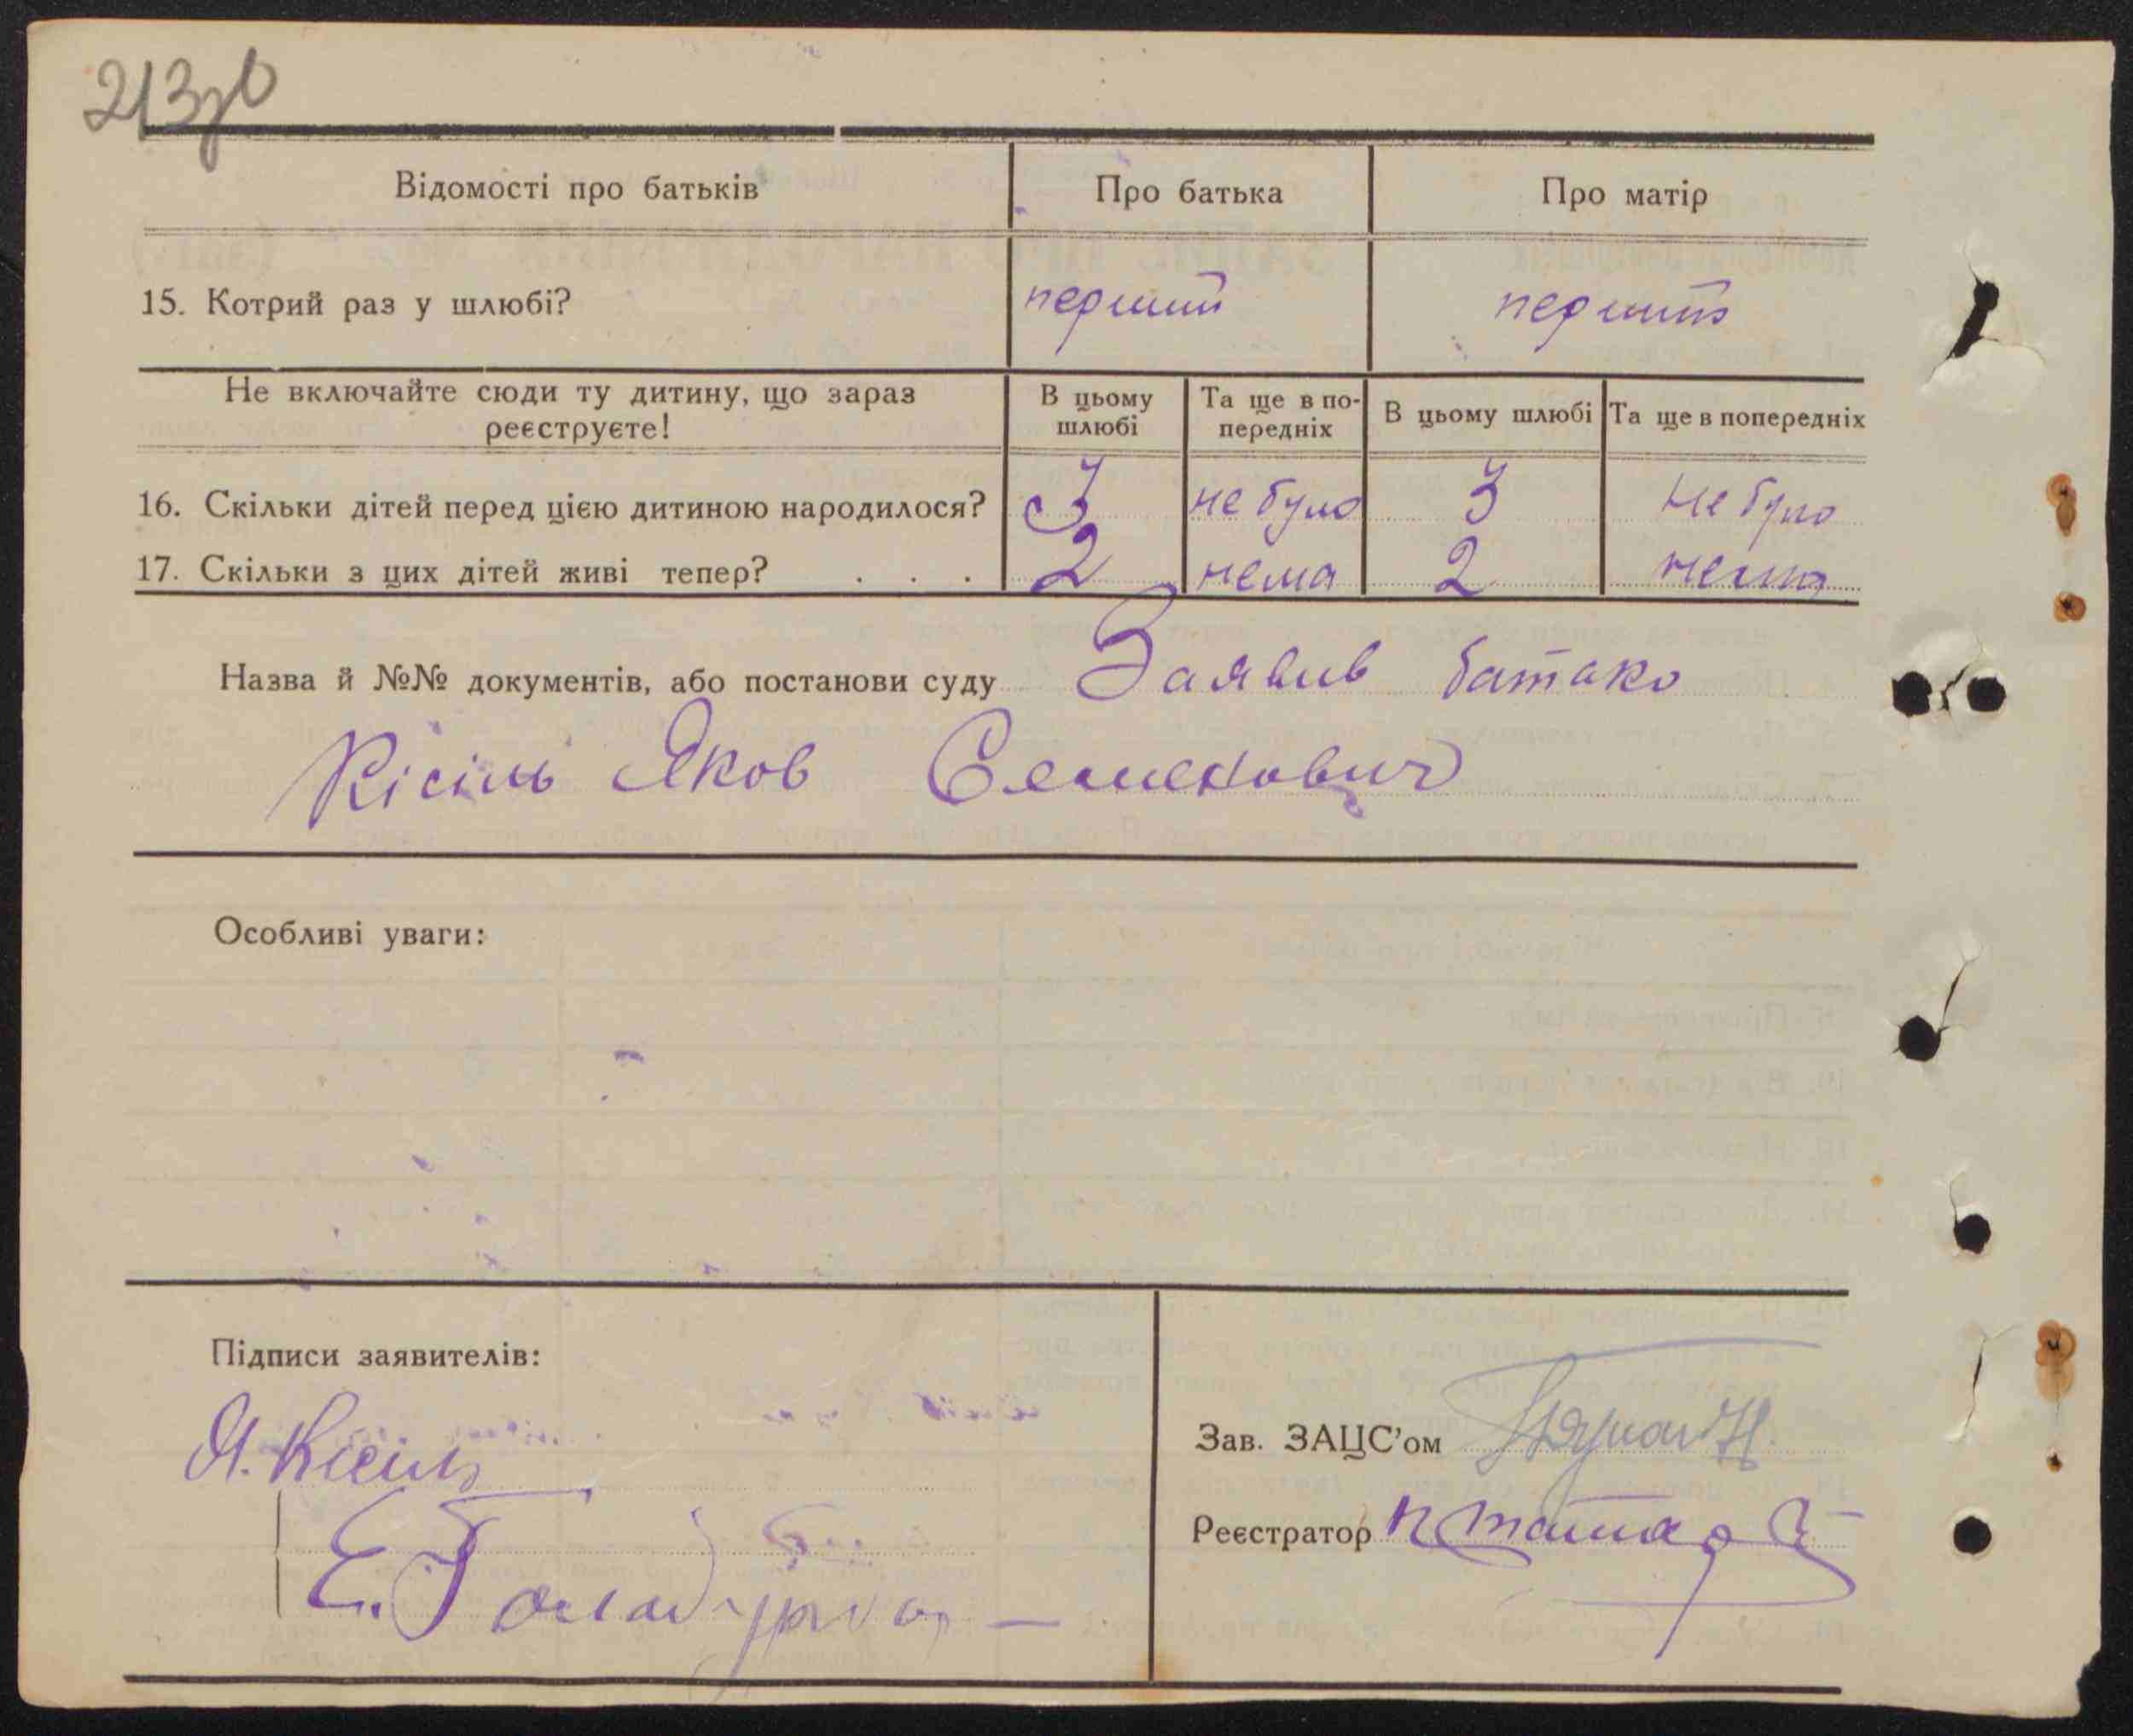 213зв
Відомості про батьків Про батька Про матір
15. Котрий раз у шлюбі? перший перший
Не включайте сюди ту дитину, що зараз реєструєте!
В цьому шлюбі Та ще в попередніх В цьому шлюбі Та ще в попередніх
16. Скільки дітей перед цією дитиною народилося? 3 не було 3 не було
17. Скільки з цих дітей живі тепер? . . . 2 нема 2 нема
Назва й №№ документів, або постанови суду Заявив батько
Кісіль Яков Семенович
Особливі уваги:
Підписи заявителів:
Я. Кісіль
Е.
Зав. ЗАЦС'ом
Реєстратор